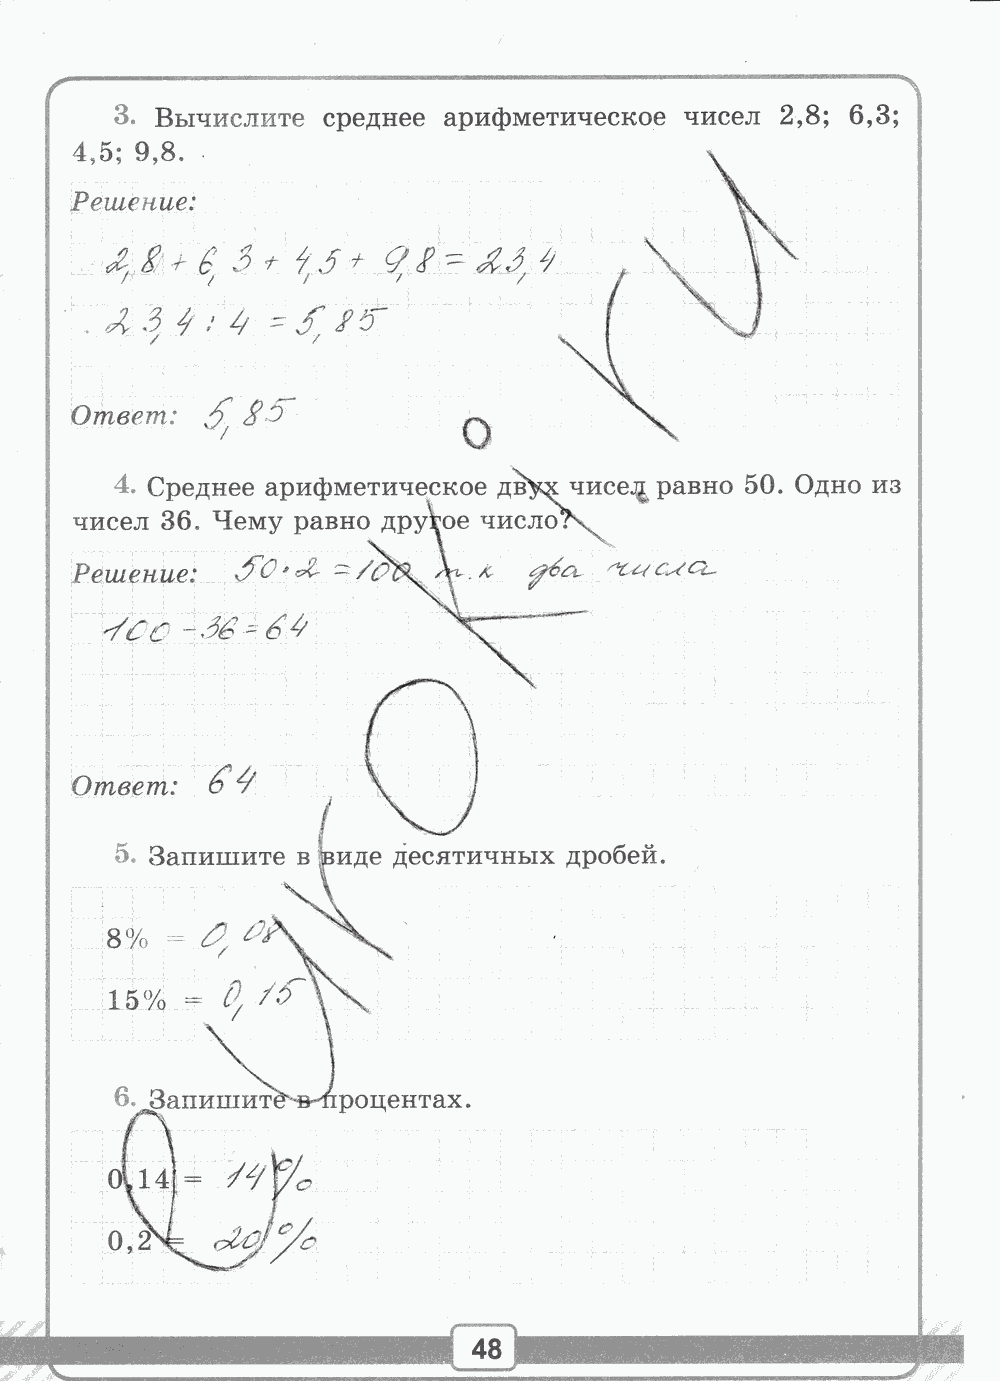 3. Вычислите среднее арифметическое чисел 2,8; 6,3;
4,5; 9,8.
Решение:
2,8 + 6,3 + 4,5 + 9,8 = 23,4
23,4 : 4 = 5,85
Ответ: 5,85
4. Среднее арифметическое двух чисел равно 50. Одно из
чисел 36. Чему равно другое число?
Решение: 50·2 = 100 т.к два числа
100 - 36 = 64
Ответ: 64
5. Запишите в виде десятичных дробей.
8% = 0,08
15% = 0,15
6. Запишите в процентах.
0,14 = 14%
0,2 = 20%
48